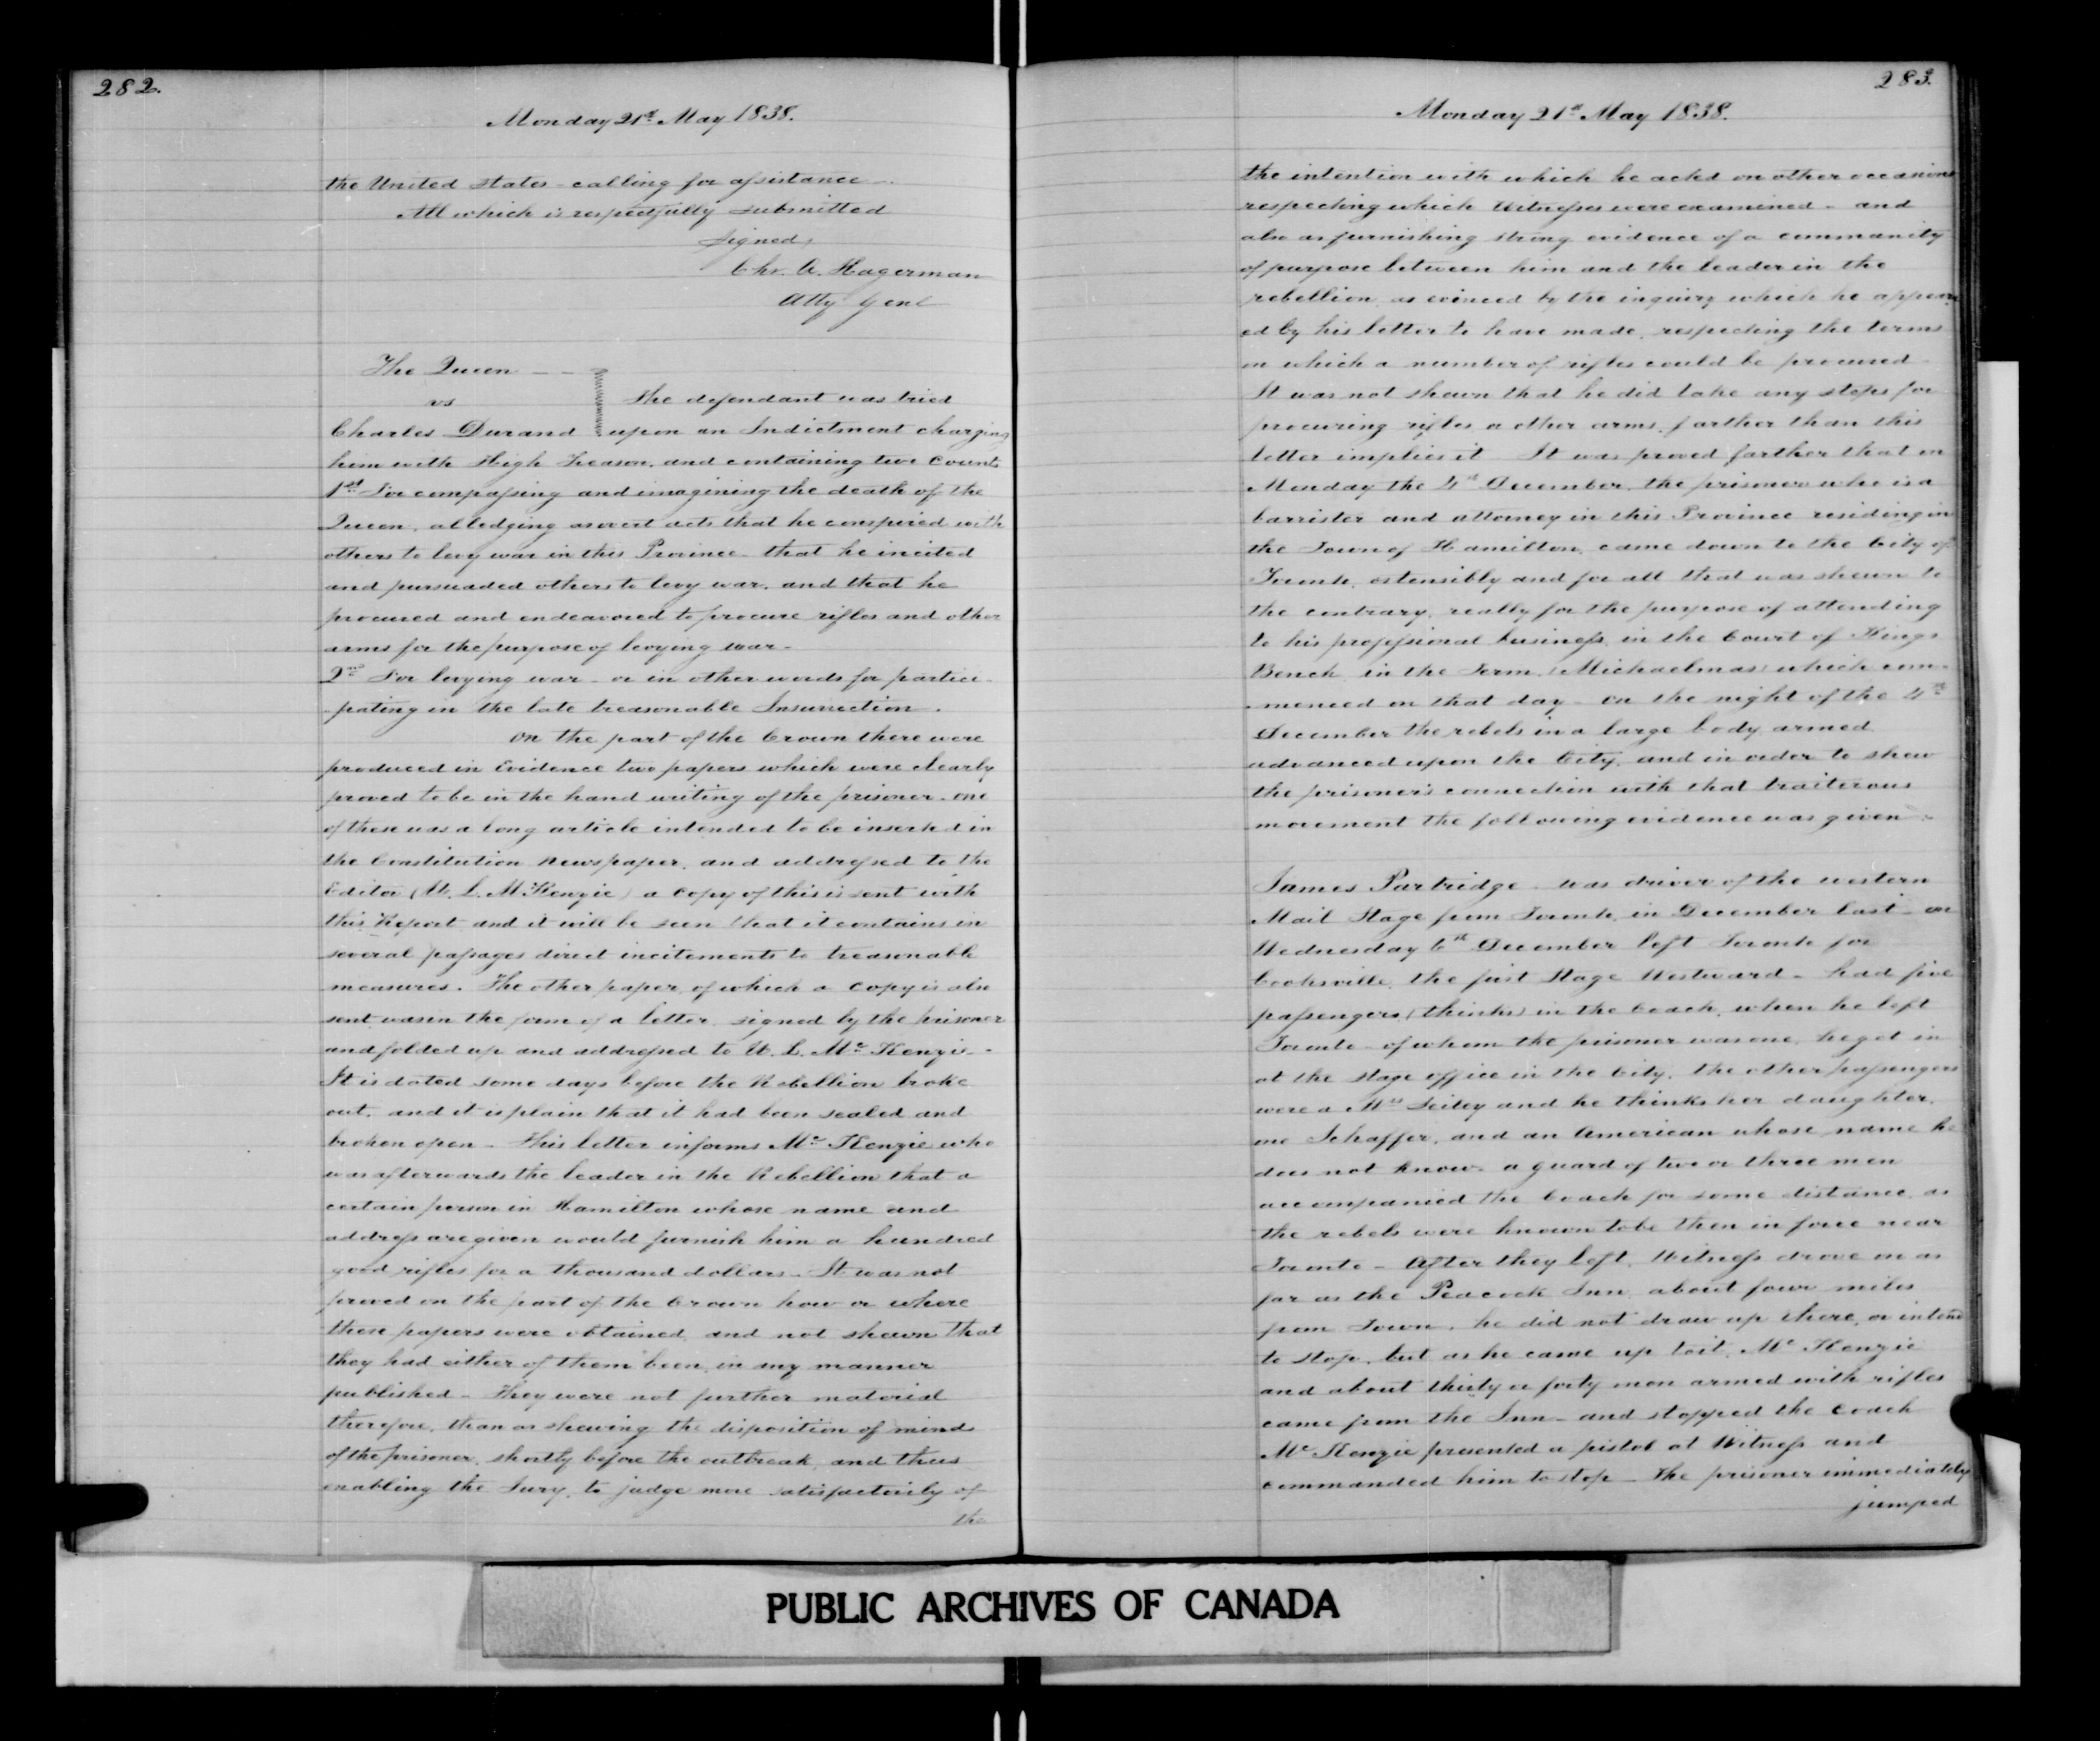 282.
Monday 21st May 1838.
the United States - calling for assistance -
All which is respectfully submitted
Signed,
Chr. A. Hagerman
Atty Genl
The Queen - - -
vs
The defendant was tried
Charles Durand upon an Indictment charging
him with High Treason, and containing two Counts
1st For compassing and imagining the death of the
Queen, alledging as overt acts that he conspired with
others to levy war in this Province - that he incited
and pursuaded others to levy war, and that he
procured and endeavored to procure rifles and other
arms for the purpose of levying war -
2nd For levying war - or in other words for partici-
-pating in the late treasonable Insurrection.
On the part of the Crown there were
produced in Evidence two papers which were clearly
proved to be in the hand writing of the prisoner - one
of these was a long article intended to be inserted in
the Constitution Newspaper, and addressed to the
Editor (W. L. McKenzie) a Copy of this is sent with
this Report and it will be seen that it contains in
several passages direct incitements to treasonable
measures. The other paper, of which a Copy is also
sent was in the form of a letter signed by the prisoner
and folded up and addressed to W. L. Mc Kenzie -
It is dated some days before the Rebellion broke
out, and it is plain that it had been sealed and
broken open - This letter informs Mc Kenzie who
was afterwards the leader in the Rebellion that a
certain person in Hamilton whose name and
address are given would furnish him a hundred
good rifles for a thousand dollars - It was not
proved on the part of the Crown how or where
these papers were obtained, and not shewn that
they had either of them been, in any manner
published - They were not further material
therefore, than as shewing the disposition of mind
of the prisoner, shortly before the outbreak, and thus
enabling the Jury, to judge more satisfactorily of
the
283.
Monday 21st May 1838.
the intention with which he acted on other occasions
respecting which Witnesses were examined - and
also as furnishing strong evidence of a community
of purpose between him and the leader in the
rebellion, as evinced by the inquiry which he appear
ed by his letter to have made, respecting the terms
on which a number of rifles could be procured -
It was not shewn that he did take any steps for
procuring rifles or other arms, farther than this
letter implies it It was proved farther that on
Monday the 4th December, the prisoner who is a
barrister and attorney in this Province residing in
the Town of Hamilton, came down to the City of
Toronto, ostensibly and for all that was shewn to
the contrary, really for the purpose of attending
to his professional business, in the Court of Kings
Bench, in the Term (Michaelmas) which com-
-menced on that day - On the night of the 4th
December the rebels in a large body armed
advanced upon the City, and in order to shew
the prisoner's connection with that traiterous
movement the following evidence was given -
James Partridge - was driver of the western
Mail Stage from Toronto, in December last - on
Wednesday 6th December left Toronto for
Cooksville, the first Stage Westward - had five
passengers (thinks) in the Coach, when he left
Toronto - of whom the prisoner was one, he got in
at the stage office in the City, the other passengers
were a Mrs and he thinks her daughter,
one Schaffer, and an American whose name he
does not know - a guard of two or three men
accompanied the Coach for some distance, as
the rebels were known to be then in force near
Toronto - After they left, Witness drove on as
far as the Peacock Inn, about four miles
from Town, he did not draw up there, or intend
to stop, but as he came up to it, Mc Kenzie
and about thirty or forty men armed with rifles
came from the Inn - and stopped the Coach
Mc Kenzie presented a pistol at Witness and
commanded him to stop - The prisoner immediately
jumped
PUBLIC ARCHIVES OF CANADA